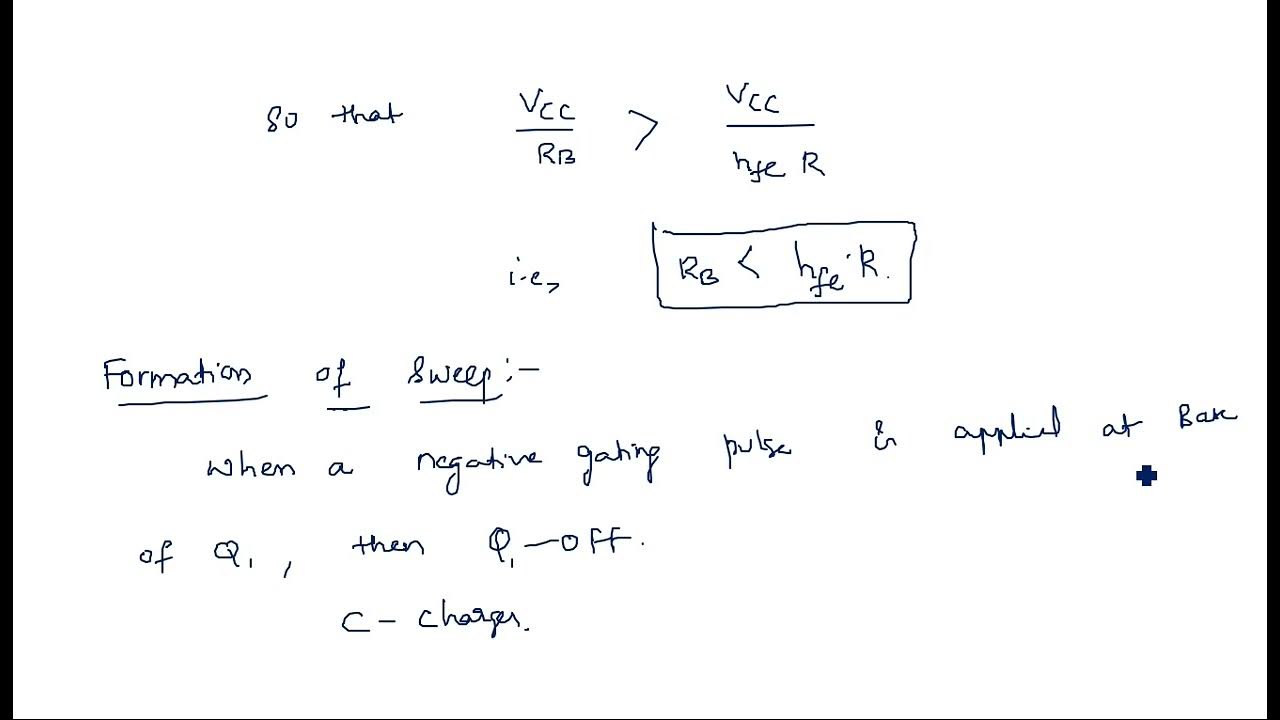 So that VCC / RB > VCC / hfe R
i.e, RB < hfe · R.
Formation of Sweep :-
When a negative gating pulse is applied at Base
of Q1, then Q1 — OFF.
C - charges.